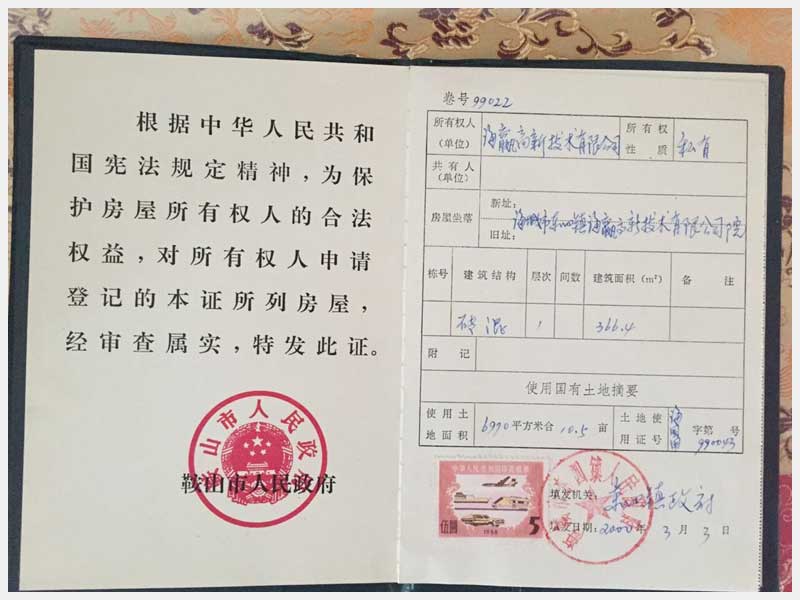 根据中华人民共和
国宪法规定精神，为保
护房屋所有权人的合法
权益，对所有权人申请
登记的本证所列房屋，
经审查属实，特发此证。
鞍山市人民政府
鞍山市人民政府
卷号 99022
所有权人（单位） 海赢高新技术有限公司 所有权性质 私有
共有人（单位）
房屋坐落 新址：
旧址： 海城市东四镇海赢高新技术有限公司院
栋号 建筑结构 层次 间数 建筑面积（m²） 备注
砖混 1 366.4
附记
使用国有土地摘要
使用土地面积 6970平方米合 10.5 亩 土地使用证号 海国用 字第 990043 号
中华人民共和国印花税票
伍圆 1988 5
填发机关： 镇政府
填发日期：2000年 3 月 3 日